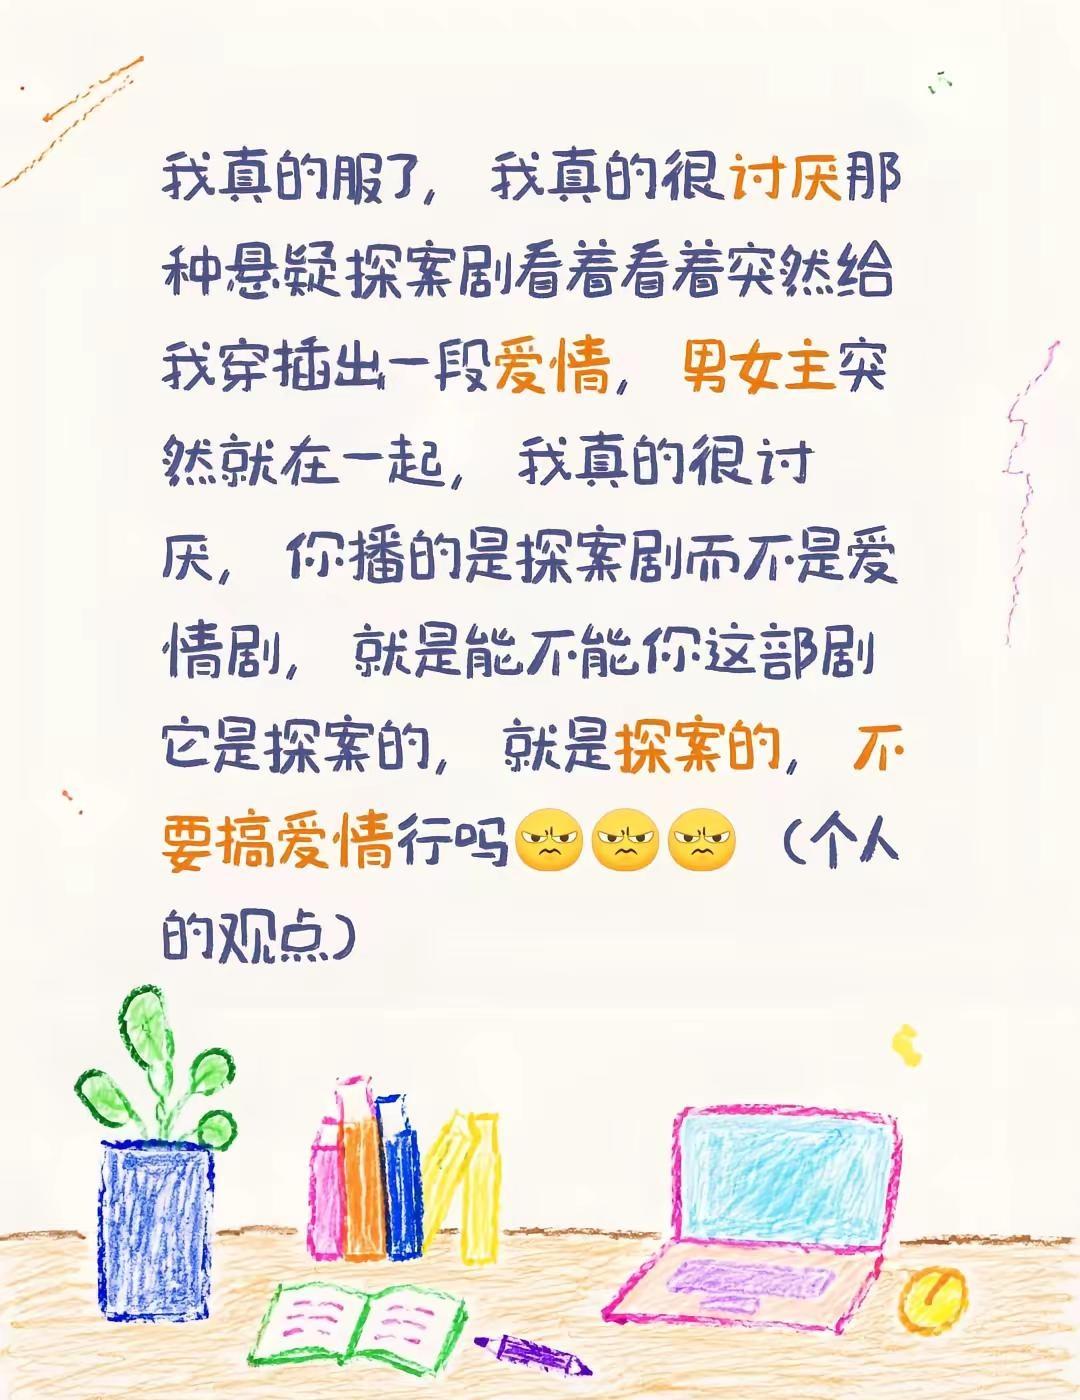 我真的服了, 我真的很讨厌那
种悬疑探案剧看着看着突然给
我穿插出一段爱情, 男女主突
然就在一起, 我真的很讨
厌, 你播的是探案剧而不是爱
情剧, 就是能不能你这部剧
它是探案的, 就是探案的, 不
要搞爱情行吗😠😠😠 (个人
的观点)